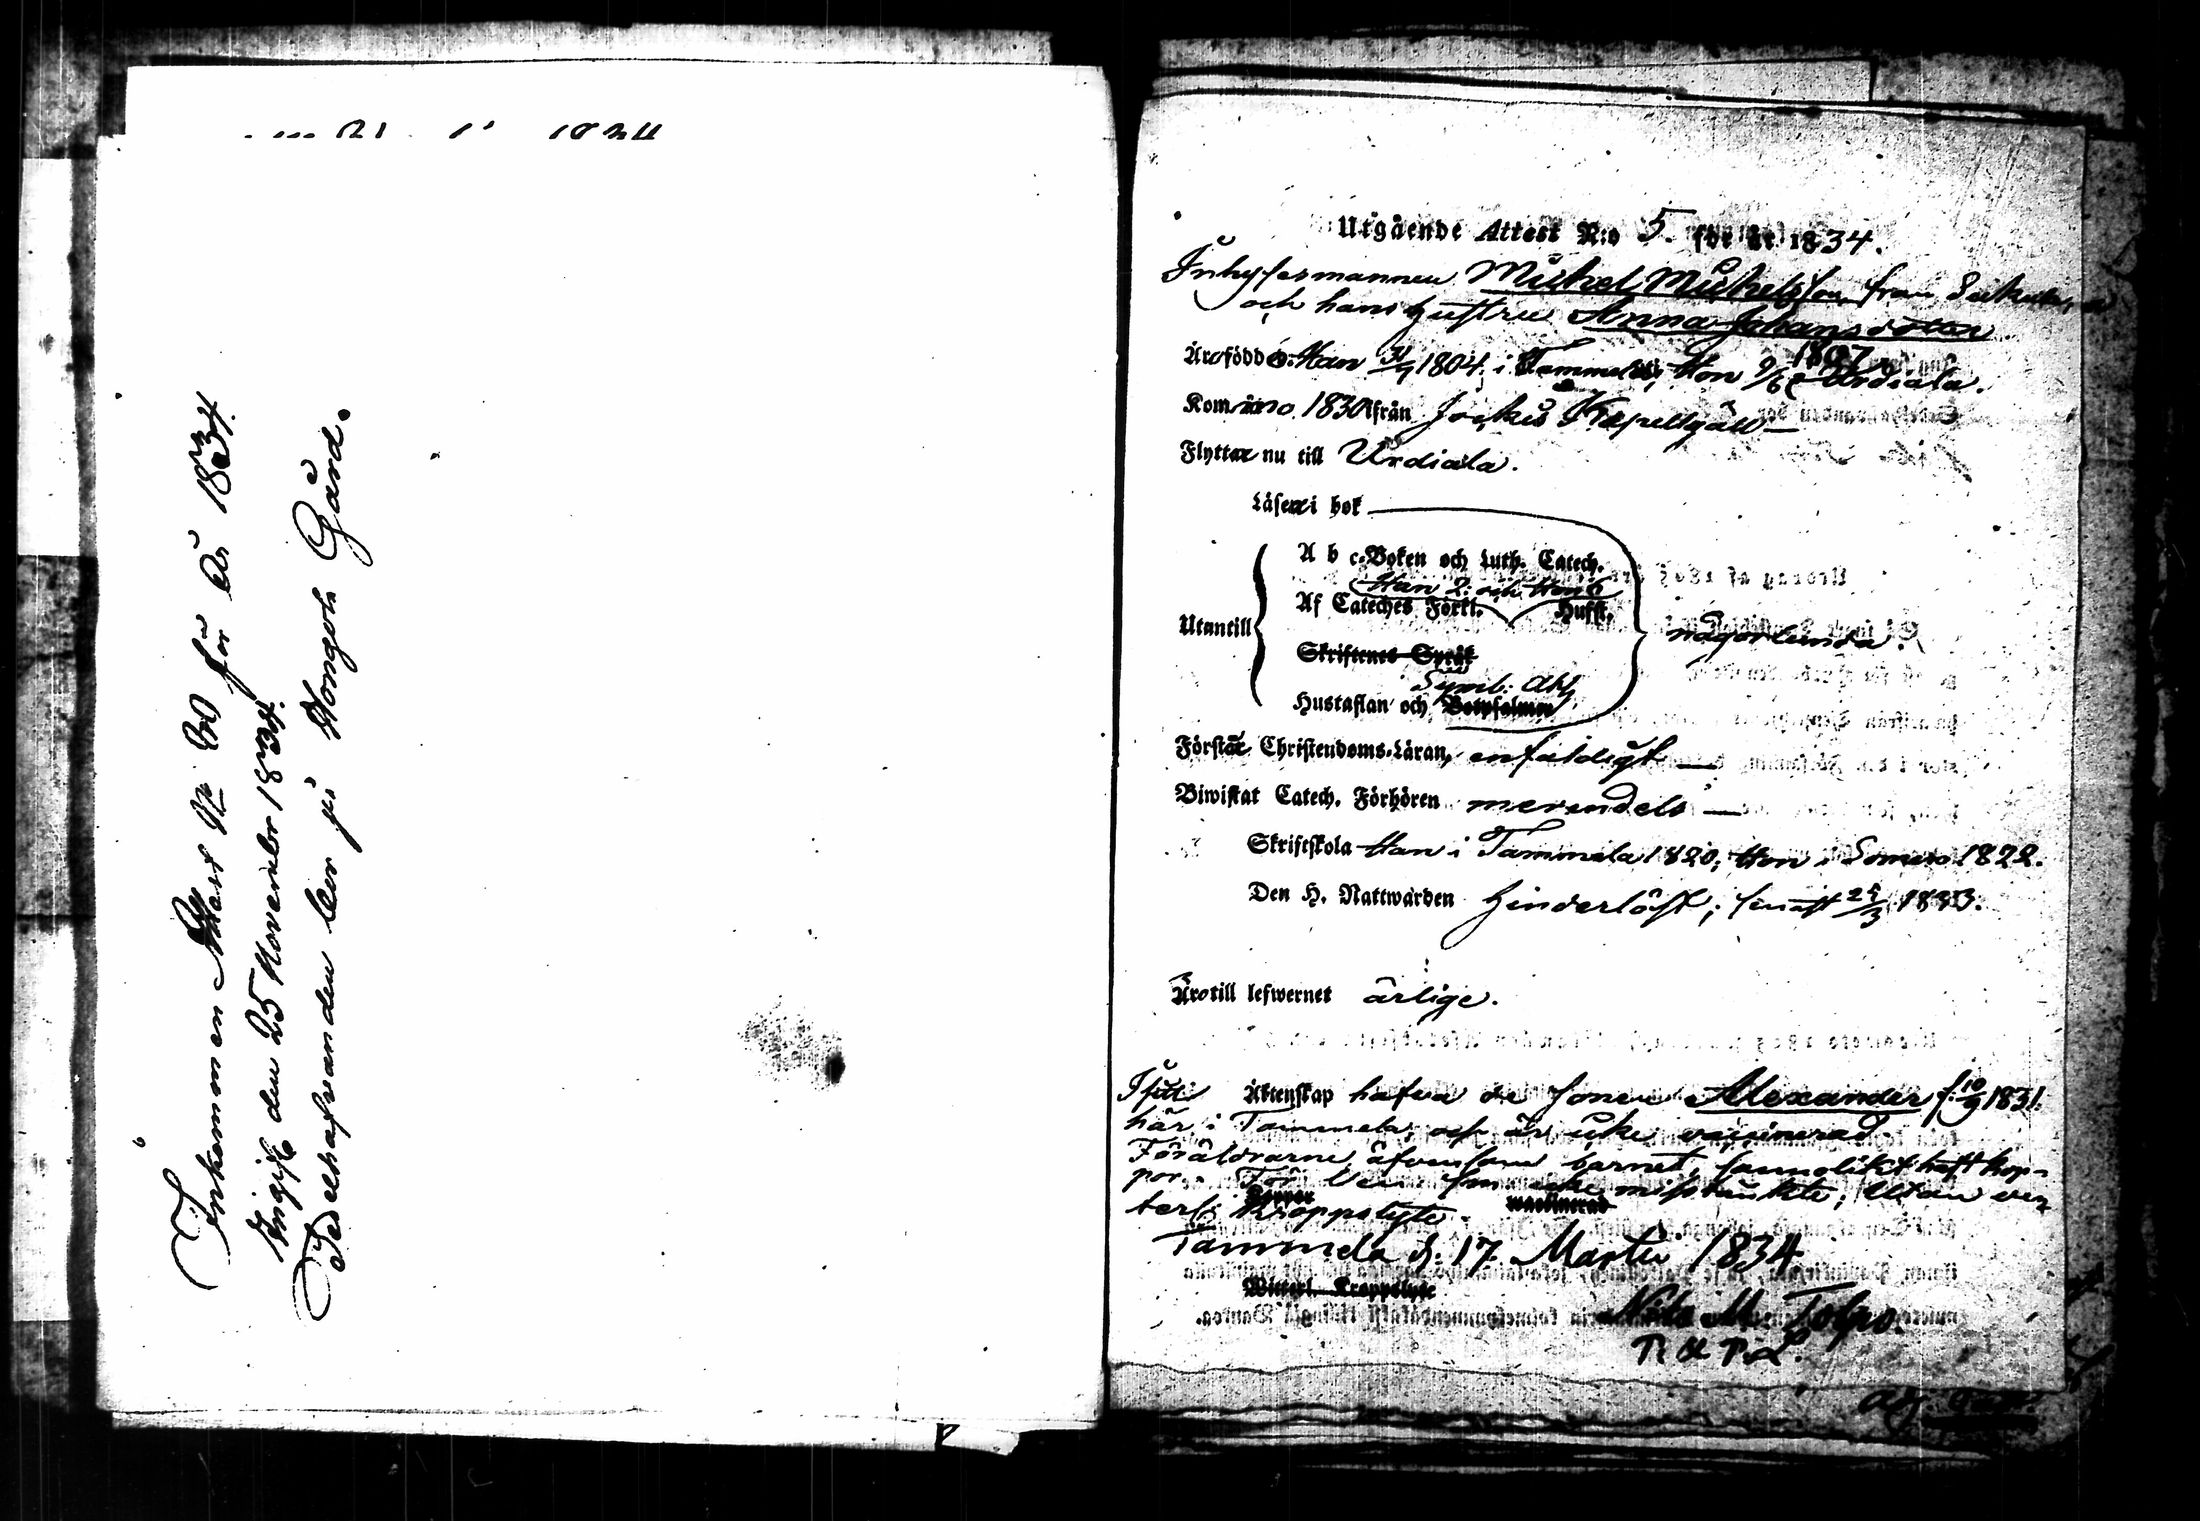 Inkommen Attest No 20 för år 1834.
Ingift den 25 November 1834.
Inkommande ler på Hongola Gård.
Utgående Attest N:o 5. för år 1834.
Inhysesmannen Michel Michelsson från
och hans Hustru Anna Johansdotter
Äro födde: Han 1804 i Tammela; Hon 1807 i Urdiala.
Kommo 1830 ifrån Jockis Kapellgäll —
Flytta nu till Urdiala.
Läsa i bok
A b c-Boken och Luth. Catech.
Han 2: och Hon 6
Af Cateches Förkl. Hufst.
Utantill
någorlunda.
Skriftenes Språk
Symb: Ath
Hustaflan och Botpsalmer
Förstå Christendoms-Läran, enfaldigt —
Biwistat Catech. Förhören merendels —
Skriftskola Han i Tammela 1820; Hon i Somero 1822.
Den H. Nattwarden Hinderlöst; senast 1833.
Äro till lefwernet ärlige.
Äktenskap hafva de sonen Alexander f. 10/9 1831.
här i Tammela, och är icke vaccinerad
Föräldrarne, äfvensom barnet, haft kop-
por. För icke misstänkte; Utan
Koppor waccinerad
Kroppslyte.
Tammela d: 17. Martii 1834
Witterl. Kroppslyte
Nils M. Tolpo.